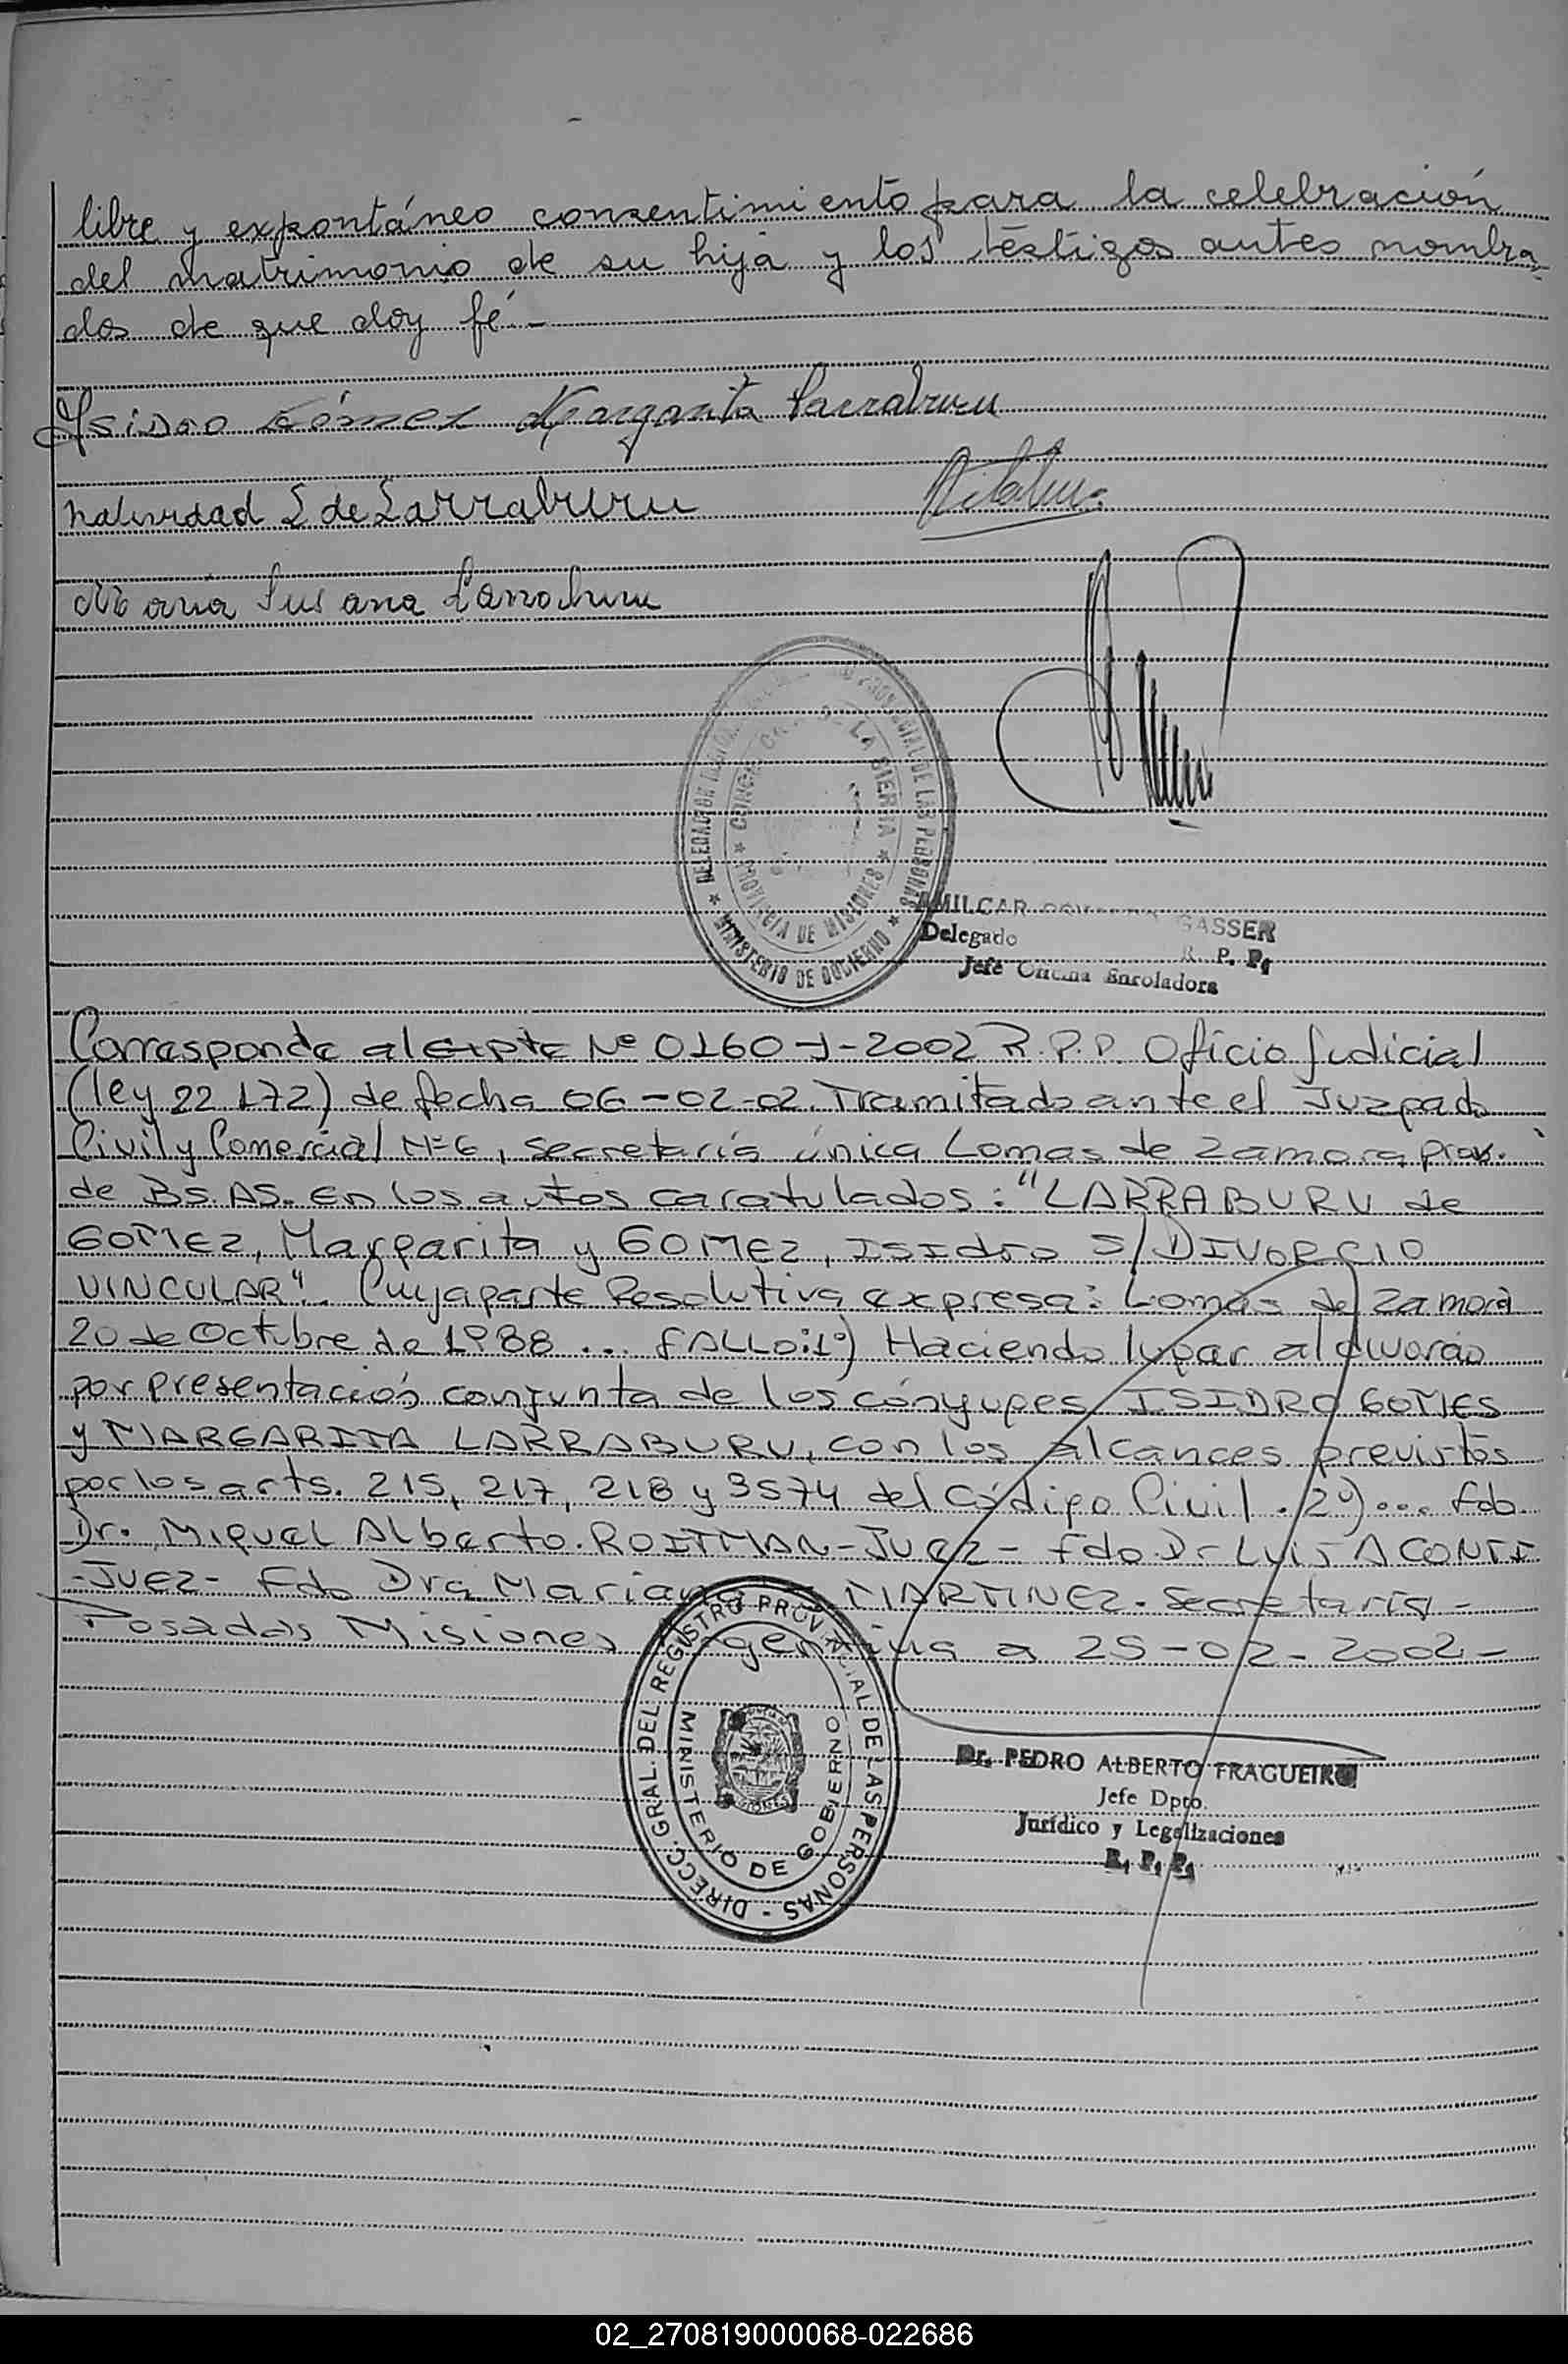 libre y expontáneo consentimiento para la celebración
del matrimonio de su hija y los testigos antes nombra-
dos de que doy fé.-
Isidro Gómez Margarita Larraburu
Natividad L de Larraburu
Maria Susana Larraburu
DELEGACION PROVINCIAL DE LAS PERSONAS
CONCEP DE LA SIERRA
PROVINCIA DE MISIONES
MINISTERIO DE GOBIERNO
AMILCAR GASSER
Delegado R. P. P.
Jefe Oficina Enroladora
Corresponde al Expte Nº 0160-J-2002 R.P.P. Oficio Judicial
(ley 22 172) de fecha 06-02-02 Tramitado ante el Juzgado
Civil y Comercial Nº 6, secretaría única Lomas de Zamora, prov.
de BS.AS. en los autos caratulados: "LARRABURU de
GOMEZ, Margarita y GOMEZ, ISIdro S/DIVORCIO
VINCULAR". Cuya parte Resolutiva expresa: Lomas de Zamora
20 de Octubre de 1988 ... FALLO: 1º) Haciendo lugar al divorcio
por presentación conjunta de los cónyuges ISIDRO GOMES
y MARGARITA LARRABURU, con los alcances previstos
por los arts. 215, 217, 218 y 3574 del Código Civil. 2º).... Fdo.
Dr. MIGUEL Alberto. ROITMAN-JUEZ- Fdo. Dr LUIS A CONTI
-JUEZ- Fdo Dra Mariana MARTINEZ. Secretaria-
Posadas Misiones Argentina a 25-02-2002-
DIRECC. GRAL. DEL REGISTRO PROVINCIAL DE LAS PERSONAS -
MINISTERIO DE GOBIERNO
MISIONES
Dr. PEDRO ALBERTO FRAGUEIRO
Jefe Dpto.
Jurídico y Legalizaciones
R. P. P.
02_270819000068-022686